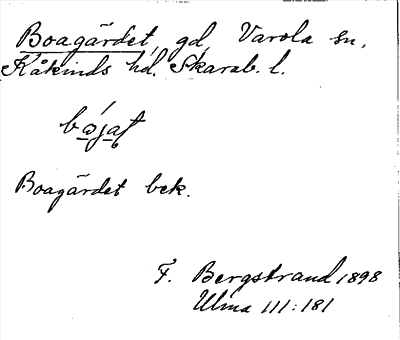 Boagärdet, gd, Varola sn,
Kåkinds hd. Skarab. l.
Boagärdet bek.
F. Bergstrand 1898
Ulma III:181